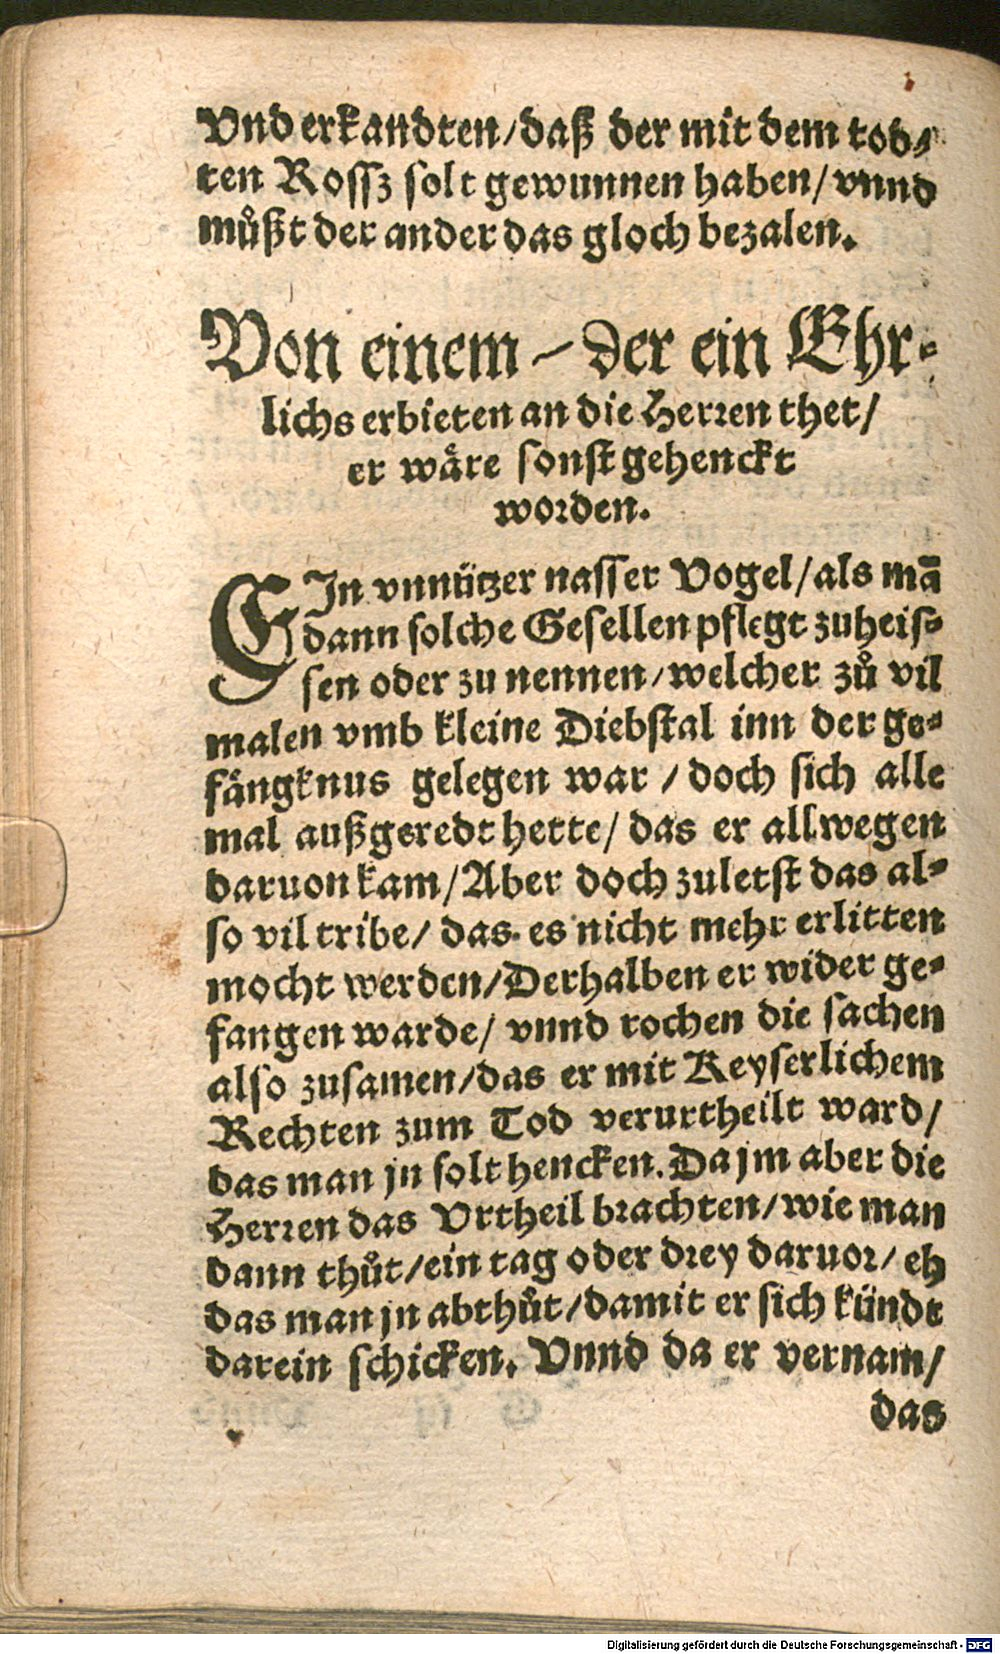 Vnd erkandten/daß der mit dem tod⸗
ten Rossz solt gewunnen haben/vnnd
muͤßt der ander das gloch bezalen.
Von einem – der ein Ehr⸗
lichs erbieten an die Herren thet/
er waͤre sonst gehenckt
worden.
EIn vnnützer nasser Vogel/als mā
dann solche Gesellen pflegt zuheis⸗
sen oder zu nennen/welcher zuͦ vil
malen vmb kleine Diebstal inn der ge⸗
faͤngknus gelegen war/doch sich alle
mal außgeredt hette/das er allwegen
daruon kam/Aber doch zuletst das al⸗
so vil tribe/das es nicht mehr erlitten
mocht werden/Derhalben er wider ge⸗
fangen warde/vnnd rochen die sachen
also zusamen/das er mit Keyserlichem
Rechten zum Tod verurtheilt ward/
das man jn solt hencken. Da jm aber die
Herren das Vrtheil brachten/wie man
dann thuͦt/ein tag oder drey daruor/eh
das man jn abthuͦt/damit er sich kündt
darein schicken. Vnnd da er vernam/
das
Digitalisierung gefördert durch die Deutsche Forschungsgemeinschaft - DFG